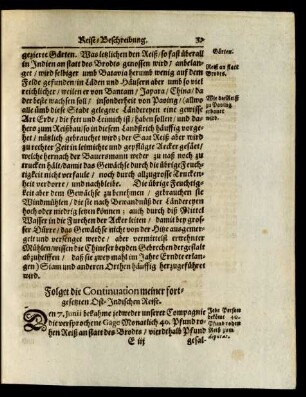 Reise/Beschreibung.
gezierte Gärten. Was letzlichen den Reiß/ so fast überall
in Indien an statt des Brodts genossen wird/ anbelan-
get/ wird selbiger umb Batavia herumb wenig auf dem
Felde gefunden in Läden und Häusern aber umb so viel
reichlicher/ weilen er von Bantam/ Japara/ China/ da
der beste wachsen soll/ insonderheit von
alle umb diese Stadt gelegene Ländereyen eine gewisse
Art Erde/ die fett und Leimich ist/ haben sollen/ und da-
hero zum Reißbau/ so in diesem Landstrich häuffig vorge-
het/ nützlich gebrauchet wird; der Saat Reiß aber wird
zu rechter Zeit in leimichte und gepflügte Aecker gesäet/
welche hernach der Bauersmann weder zu naß noch zu
trucken hält/ damit das Gewächs durch die übrige Feuch-
tigkeit nicht verfaule/ noch durch allzugrosse Trucken-
heit verdorre/ und nachbleibe. Die übrige Feuchtig-
keit aber dem Gewächse zu benehmen/ gebrauchen sie
Windmühlen/ die sie nach Bewandnüß der Länderepen
hoch oder niedrig setzen können; auch durch diß Mittel
Wasser in die Furchen der Acker leiten/ damit bey gros-
ser Dürre/ das Gewächse nicht von der Hitze ausgemer-
gelt und versenget werde/ aber vermittelst erwehnter
Mühlen/ wissen die Chineser beyden Gebrechen dergestalt
abzuhelffen/ daß sie zwey mahl im Jahre Erndte erlan-
gen) Siam und anderen Orthen häuffig herzugeführet
wird.
Gärten.
Reiß an statt
Brodts.
Wie der Reiß
gebauet
wird.
Folget die Continuation meiner fort-
gesetzten Ost-Indischen Reise.
Den 7. Junii bekahme jedweder unserer Compagnie
die versprochene Gage Monatlich 40. Pfund ro-
hen Reiß an statt des Brodts/ vierdehalb Pfund
Jede Person
bekömt 40.
Pfund rohen
Reiß zum
E iij
gesal-